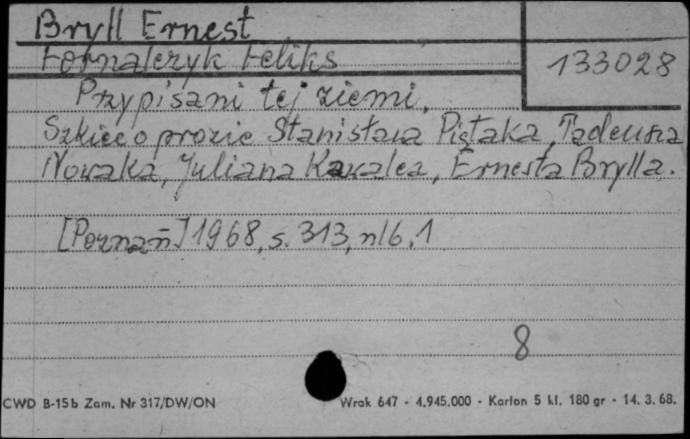 Bryll Ernest
Fornalczyk Feliks
133028
Przypisani tej ziemi.
Szkice o prozie Stanisława Piętaka, Tadeusza
Nowaka, Juliana Kawalca, Ernesta Brylla.
[Poznań] 1968, s. 313, nlb, 1
8
CWD B-15b Zam. Nr 317/DW/ON
Wrak 647 - 4.945.000 - Karton 5 kl. 180 gr - 14. 3. 68.